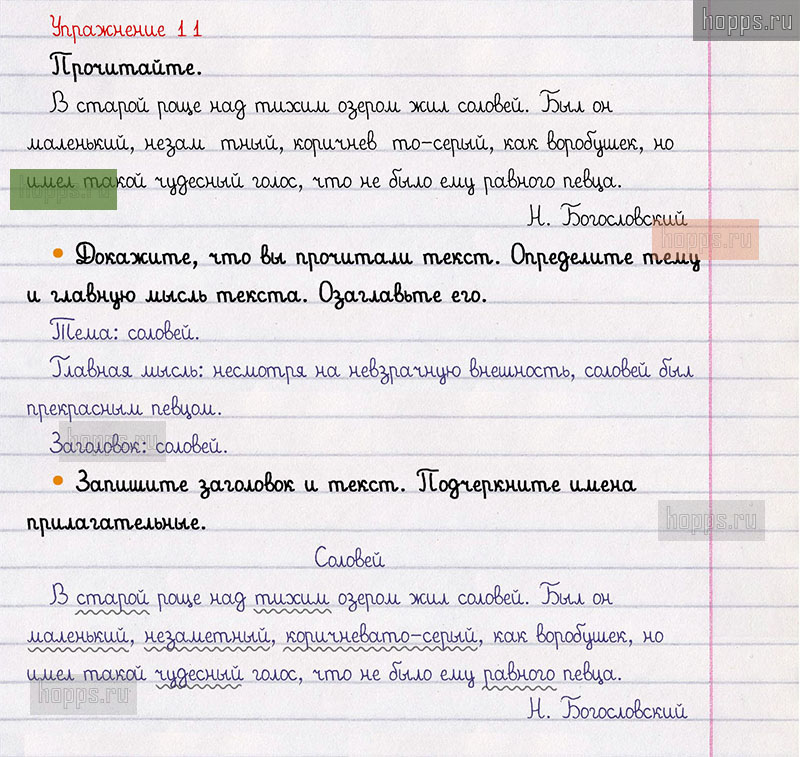 hopps.ru
Упражнение 11
Прочитайте.
В старой роще над тихим озером жил соловей. Был он
маленький, незам тный, коричнев то-серый, как воробушек, но
имел такой чудесный голос, что не было ему равного певца.
hopps.ru
Н. Богословский
hopps.ru
• Докажите, что вы прочитали текст. Определите тему
и главную мысль текста. Озаглавьте его.
Тема: соловей.
Главная мысль: несмотря на невзрачную внешность, соловей был
прекрасным певцом.
hopps.ru
Заголовок: соловей.
• Запишите заголовок и текст. Подчеркните имена
hopps.ru
прилагательные.
Соловей
В старой роще над тихим озером жил соловей. Был он
маленький, незаметный, коричневато-серый, как воробушек, но
имел такой чудесный голос, что не было ему равного певца.
hopps.ru
Н. Богословский